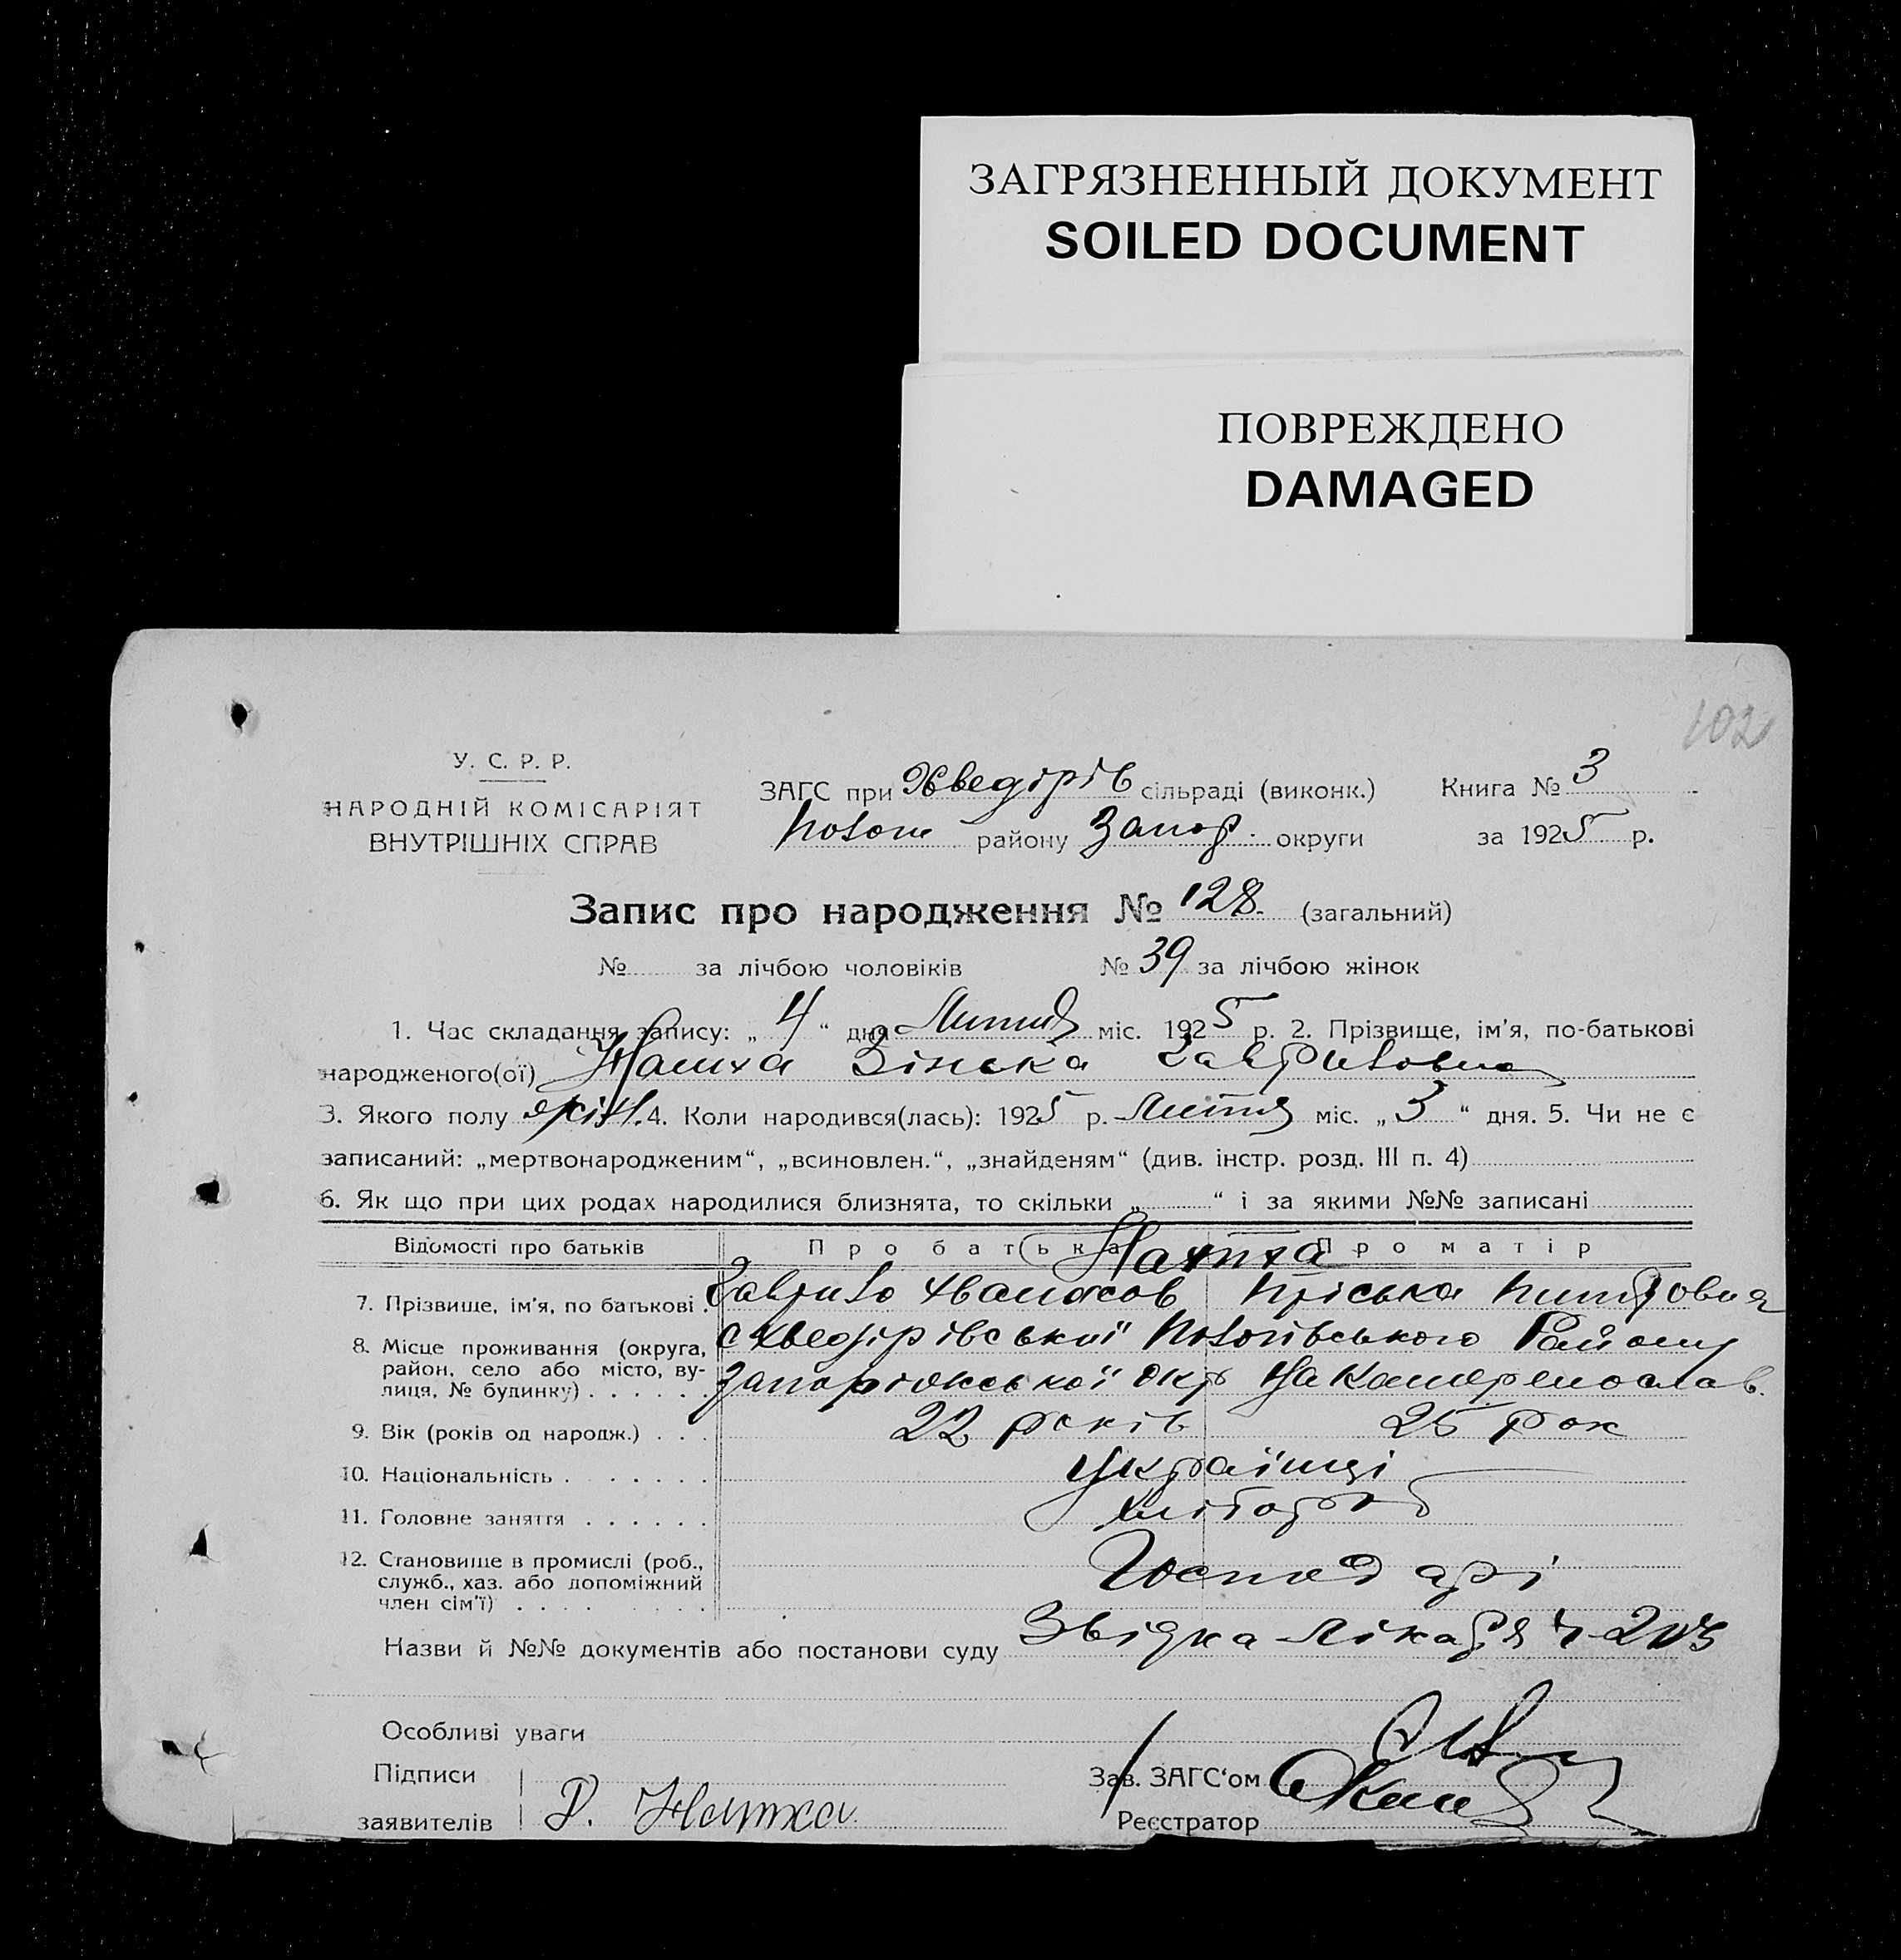 ЗАГРЯЗНЕННЫЙ ДОКУМЕНТ
SOILED DOCUMENT
ПОВРЕЖДЕНО
DAMAGED
102
У. С. Р. Р.
НАРОДНІЙ КОМІСАРІЯТ
ВНУТРІШНІХ СПРАВ
ЗАГС при Хведірів сільраді (виконк.) Книга № 3
району Запор. округи за 1925 р.
Запис про народження № 128. (загальний)
№ за лічбою чоловіків № 39 за лічбою жінок
1. Час складання запису: „ 4 “ дня міс. 1925 р. 2. Прізвище, ім'я, по-батькові
народженого(ої) Зінька
3. Якого полу жін. 4. Коли народився(лась): 1925 р. міс. „ 3 “ дня. 5. Чи не є
записаний: „мертвонародженим“, „всиновлен.“, „знайденям“ (див. інстр. розд. III п. 4)
6. Як що при цих родах народилися близнята, то скільки „ “ і за якими №№ записані
Відомості про батьків Про батька Про матір
7. Прізвище, ім'я, по батькові Пріська
8. Місце проживання (округа, район, село або місто, вулиця, № будинку) Району
Запоріжської окр
9. Вік (років од народж.) 22 років 25 рок
10. Національність Українці
11. Головне заняття хлібороб
12. Становище в промислі (роб., служб., хаз. або допоміжний член сім'ї) Господарі
Назви й №№ документів або постанови суду Звідка лікаря
Особливі уваги
Підписи
заявителів
Зав. ЗАГС‘ом
Реєстратор